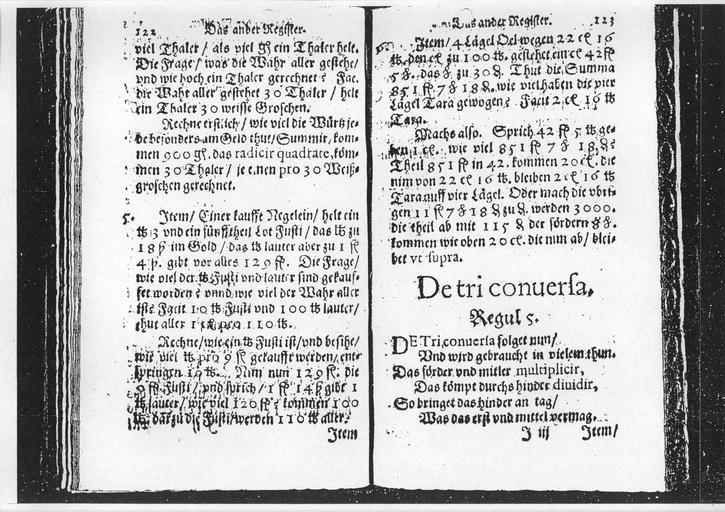 122 Das ander Register.
viel Thaler / als viel gl ein Thaler helt.
Die Frage / was die Wahr aller gestehe /
vnd wie hoch ein Thaler gerechnet? Fac.
die Wahr aller gestehet 30 Thaler / helt
ein Thaler 30 weisse Groschen.
Rechne erstlich / wie viel die Würtz je-
de besonders am Geld thut / Summir / kom-
men 900 gl. das radicir quadrate, kom-
men 30 Thaler / je einen pro 30 Weiß-
groschen gerechnet.
5. Item / Einer kaufft Negelein / helt ein
℔ 3 vnd ein fünfftheil Lot Fusti / das ℔ zu
18 β im Gold / das ℔ lauter aber zu 1 fl
4 β. gibt vor alles 129 fl. Die Frage /
wie viel der ℔ Fusti vnd lauter sind gekauf-
fet worden? vnnd wie viel der Wahr aller
ist? Facit 10 ℔ Fusti vnd 100 ℔ lauter /
thut aller 110 ℔.
Rechne / wie ein ℔ Fusti ist / vnd besihe /
wie viel ℔ pro 9 fl gekaufft werden / ent-
springen 10 ℔. Nim nun 129 fl. die
9 fl Fusti / vnd sprich / 1 fl 4 β gibt 1
℔ lauter / wie viel 120 fl? kommen 100
℔. darzu die Fusti / werden 110 ℔ aller.
Item
Das ander Register. 123
6. Item / 4 Lägel Oel wegen 22 ct 16
℔. den ct zu 100 ℔. gestehet ein ct 42 fl
5 β. das β zu 30 δ. Thut die Summa
851 fl 7 β 18 δ. wie viel haben die vier
Lägel Tara gewogen? Facit 2 ct 16 ℔
Tara.
Machs also. Sprich 42 fl 5 β ge-
ben 1 ct. wie viel 851 fl 7 β 18 δ?
Theil 851 fl in 42. kommen 20 ct. die
nim von 22 ct 16 ℔, bleiben 2 ct 16 ℔
Tara auff vier Lägel. Oder mach die vbri-
gen 11 fl 7 β 18 δ zu δ. werden 3000.
die theil ab mit 115 δ der fördern
kommen wie oben 20 ct. die nim ab / blei-
bet vt supra.
De tri conuersa.
Regul 5.
DE Tri conuersa folget nun /
Vnd wird gebraucht in vielem thun.
Das förder vnd mitler multiplicir,
Das kömpt durchs hinder diuidir,
So bringet das hinder an tag /
Was das erst vnd mittel vermag.
J iij Item /